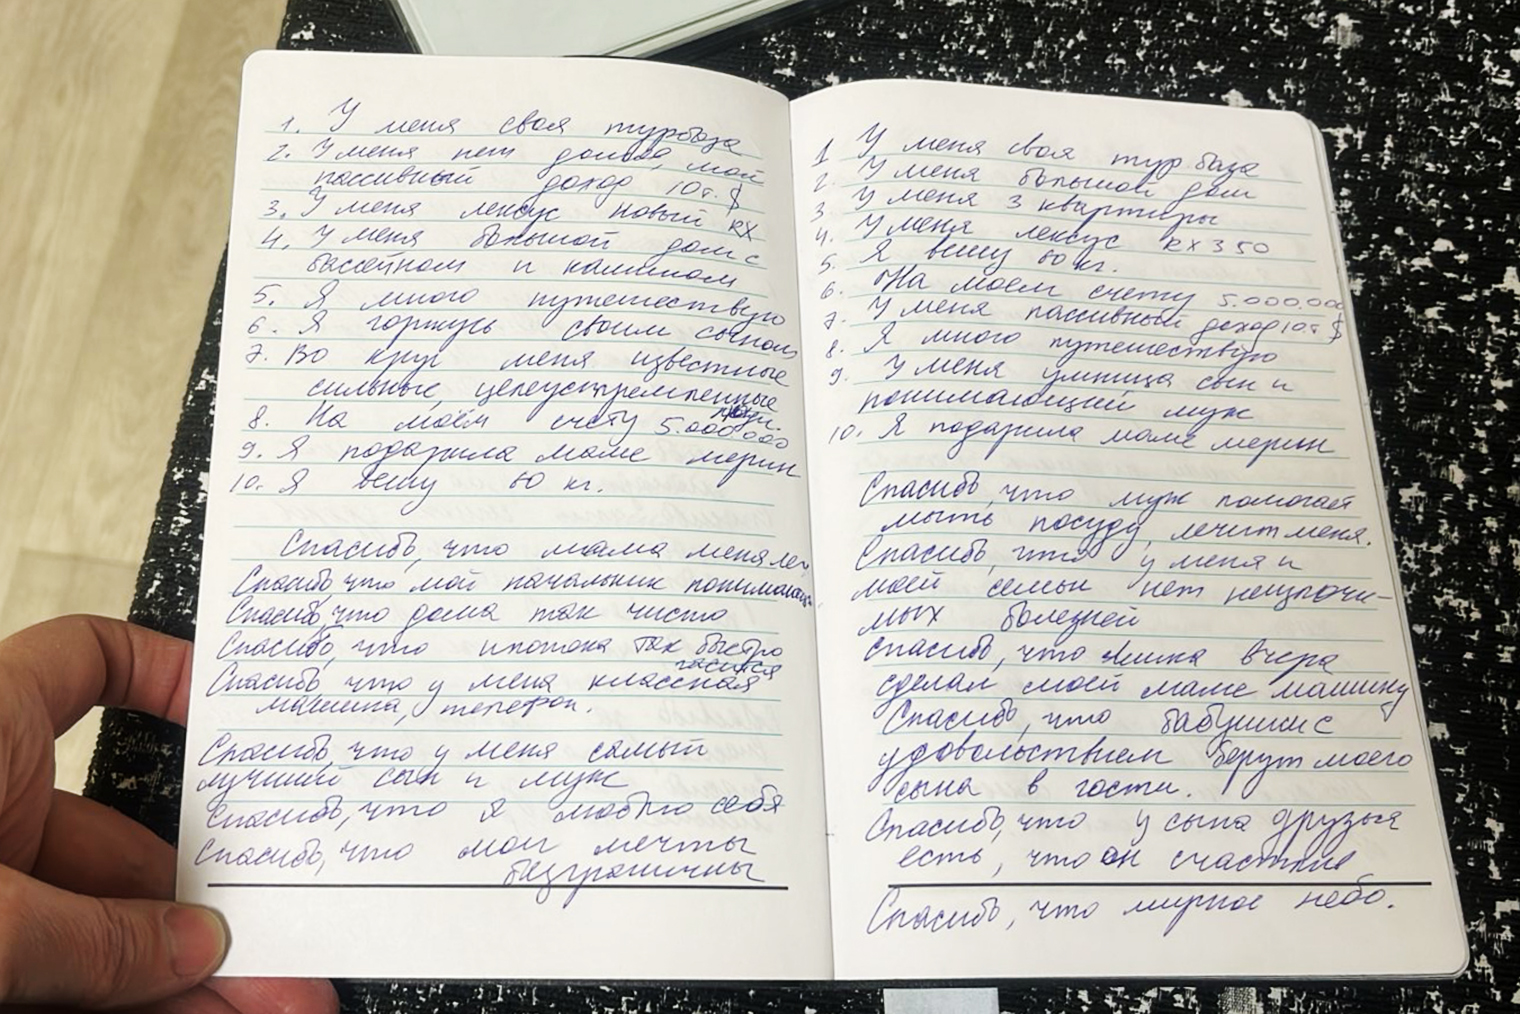 1. У меня своя турбаза
2. У меня нет долгов, мой
пассивный доход 10т. $
3. У меня лексус новый RX
4. У меня большой дом с
бассейном и камином
5. Я много путешествую
6. Я горжусь своим сыном
7. Во круг меня известные
сильные, целеустремленные
люди.
8. На моём счету 5.000.000
9. Я подарила маме мерин
10. Я вешу 60 кг.
Спасибо, что мама меня
Спасибо, что мой начальник
Спасибо, что дома так чисто
Спасибо, что ипотека так быстро
гасится
Спасибо, что у меня классная
машина, телефон.
Спасибо, что у меня самый
лучший сын и муж
Спасибо, что я люблю себя
Спасибо, что мои мечты
безграничны
1 У меня своя турбаза
2. У меня большой дом
3 У меня 3 квартиры
4. У меня лексус RX 350
5. Я вешу 60 кг.
6. На моем счету 5.000.000
7. У меня пассивный доход 10т $
8. Я много путешествую
9. У меня умница сын и
понимающий муж
10. Я подарила маме мерин
Спасибо, что муж помогает
мыть посуду, лечит меня.
Спасибо, что у меня и
моей семьи нет неизлечи-
мых болезней
Спасибо, что вчера
сделал моей маме машину
Спасибо, что бабушки с
удовольствием берут моего
сына в гости.
Спасибо, что у сына друзья
есть, что он счастлив
Спасибо, что мирное небо.